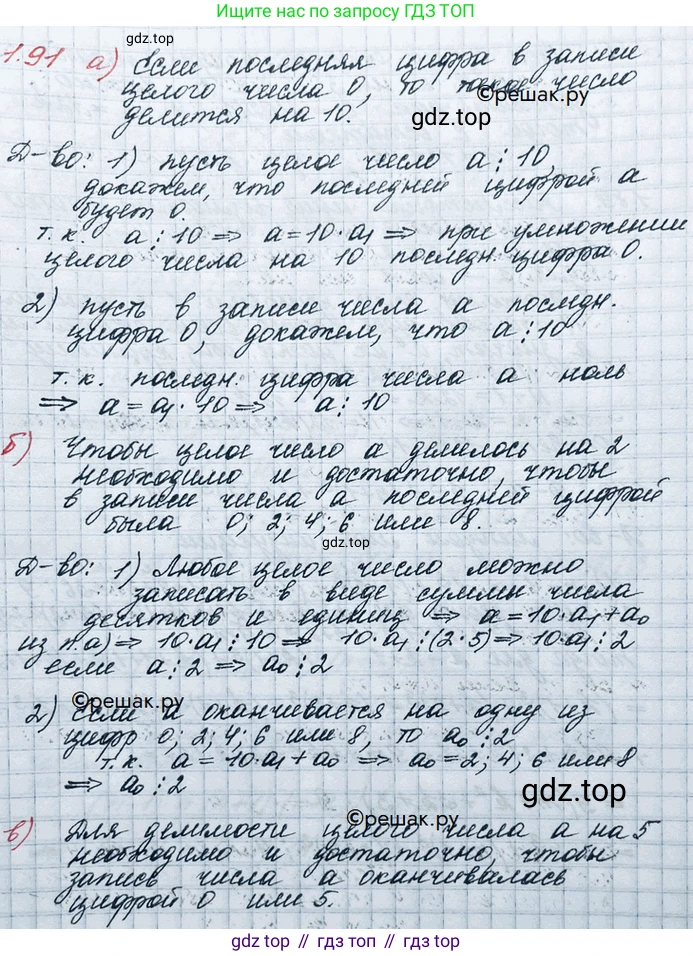 Ищите нас по запросу ГДЗ ТОП
gdz.top
1.91 а) Если последняя цифра в записи
целого числа 0, то такое число
©reшак.ру
делится на 10.
gdz.top
Д-во: 1) пусть целое число a⋮10,
докажем, что последней цифрой a
будет 0.
т.к. a⋮10 ⇒ a=10·a₁ ⇒ при умножении
целого числа на 10 последн. цифра 0.
2) пусть в записи числа a последн.
цифра 0, докажем, что a⋮10
т.к. последн. цифра числа a ноль
⇒ a=a₁·10 ⇒ a⋮10
б) Чтобы целое число a делилось на 2
необходимо и достаточно, чтобы
в записи числа a последней цифрой
была 0; 2; 4; 6 или 8.
gdz.top
Д-во: 1) Любое целое число можно
записать в виде суммы числа
десятков и единиц ⇒ a=10·a₁+a₀
из п.а) ⇒ 10·a₁⋮10 ⇒ 10·a₁⋮(2·5) ⇒ 10·a₁⋮2
если a⋮2 ⇒ a₀⋮2
©решак.ру
2) Если a оканчивается на одну из
цифр 0; 2; 4; 6 или 8, то a₀⋮2
т.к. a=10·a₁+a₀ ⇒ a₀=2; 4; 6 или 8
⇒ a₀⋮2
gdz.top
©решак.ру
в) Для делимости целого числа a на 5
необходимо и достаточно, чтобы
запись числа a оканчивалась
цифрой 0 или 5.
gdz.top // гдз.топ // gdz.top // гдз.топ